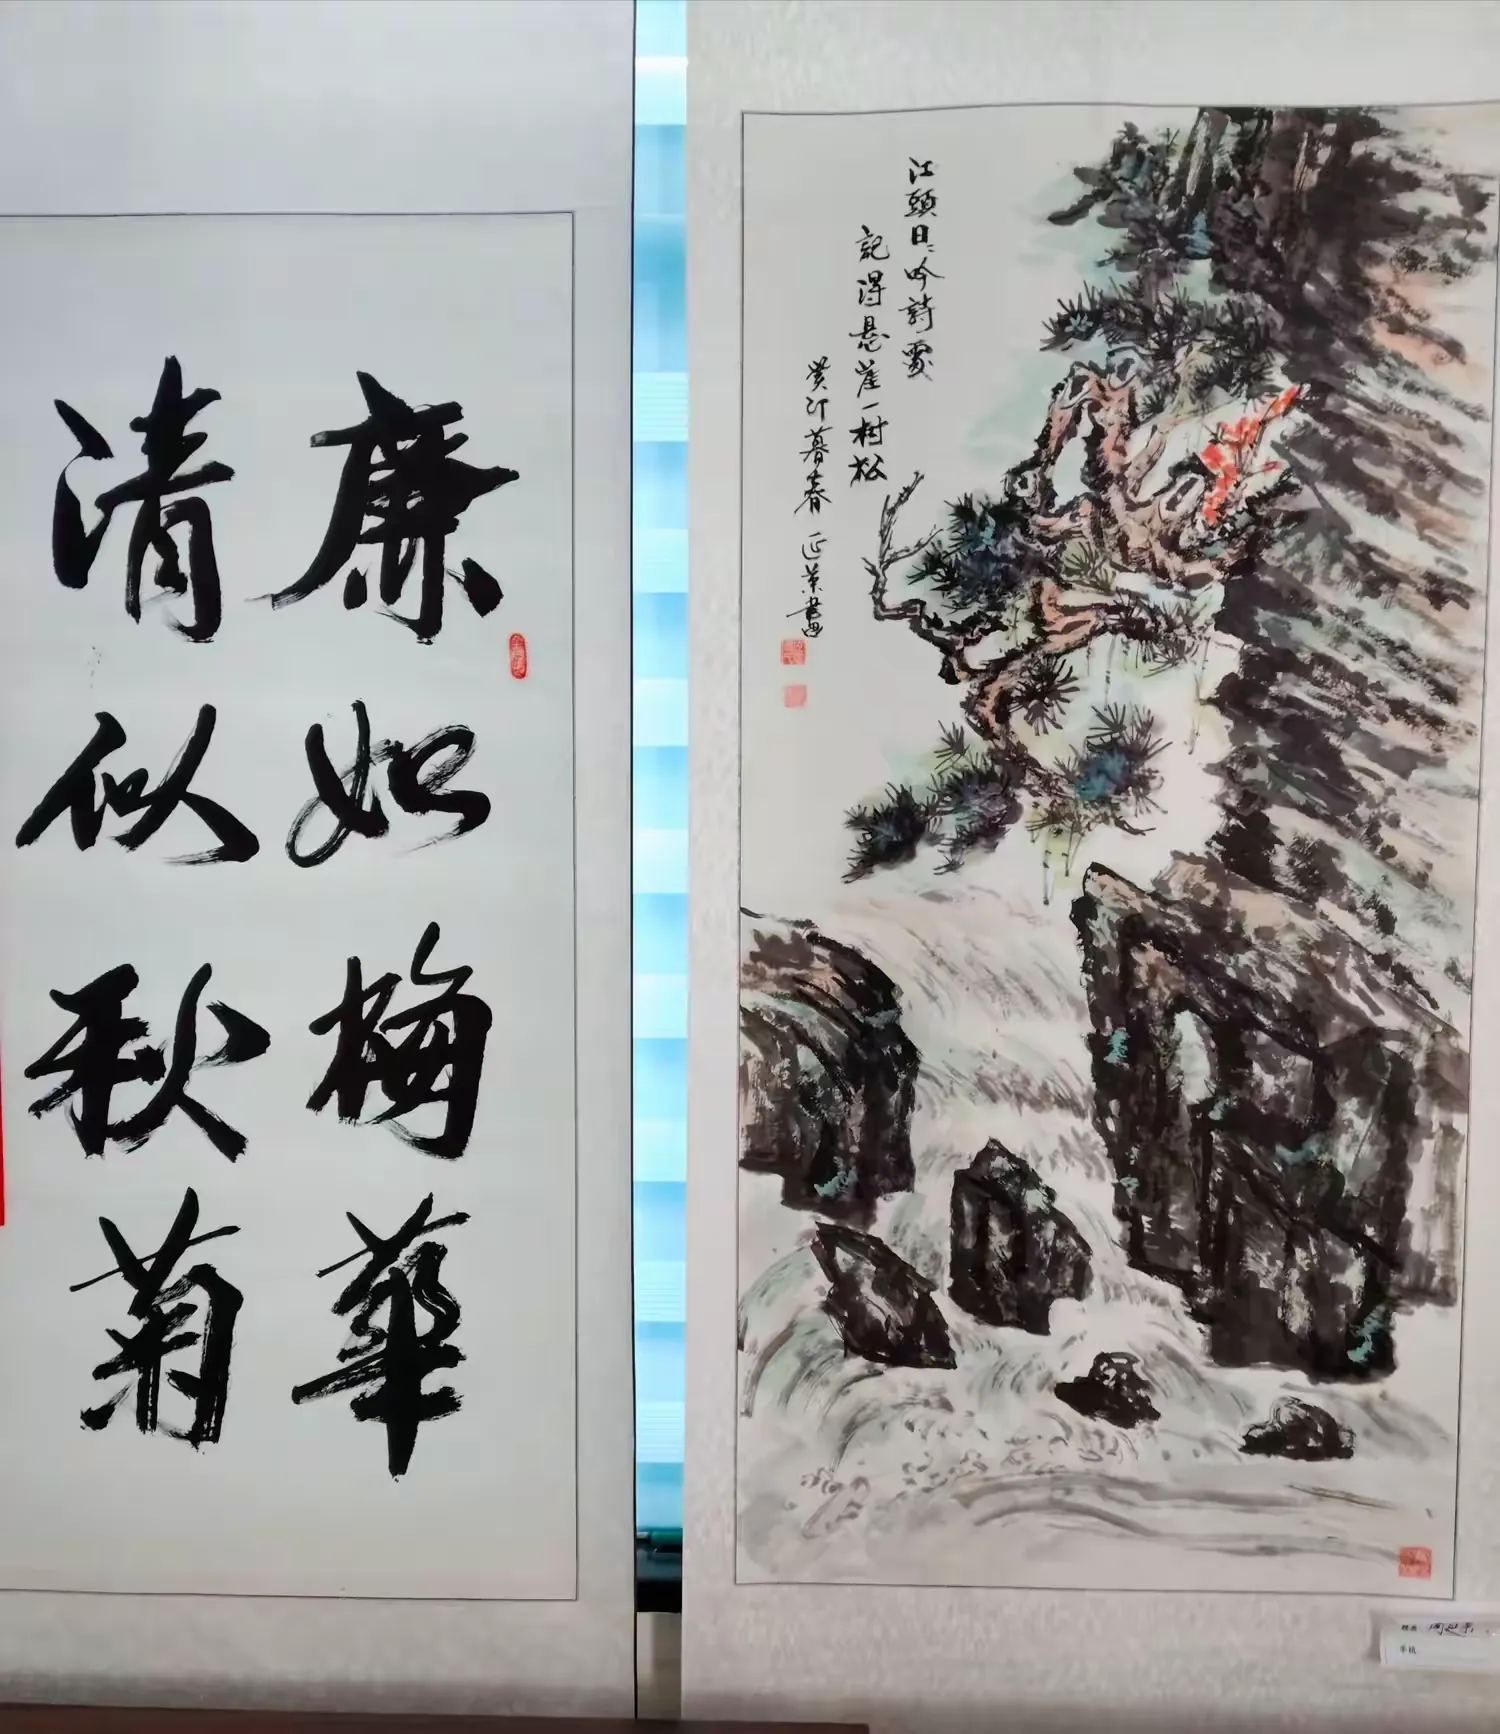 廉如梅華
清似秋菊
江頭日日吟詩處
記得懸崖一樹松
癸卯暮春 延業畫